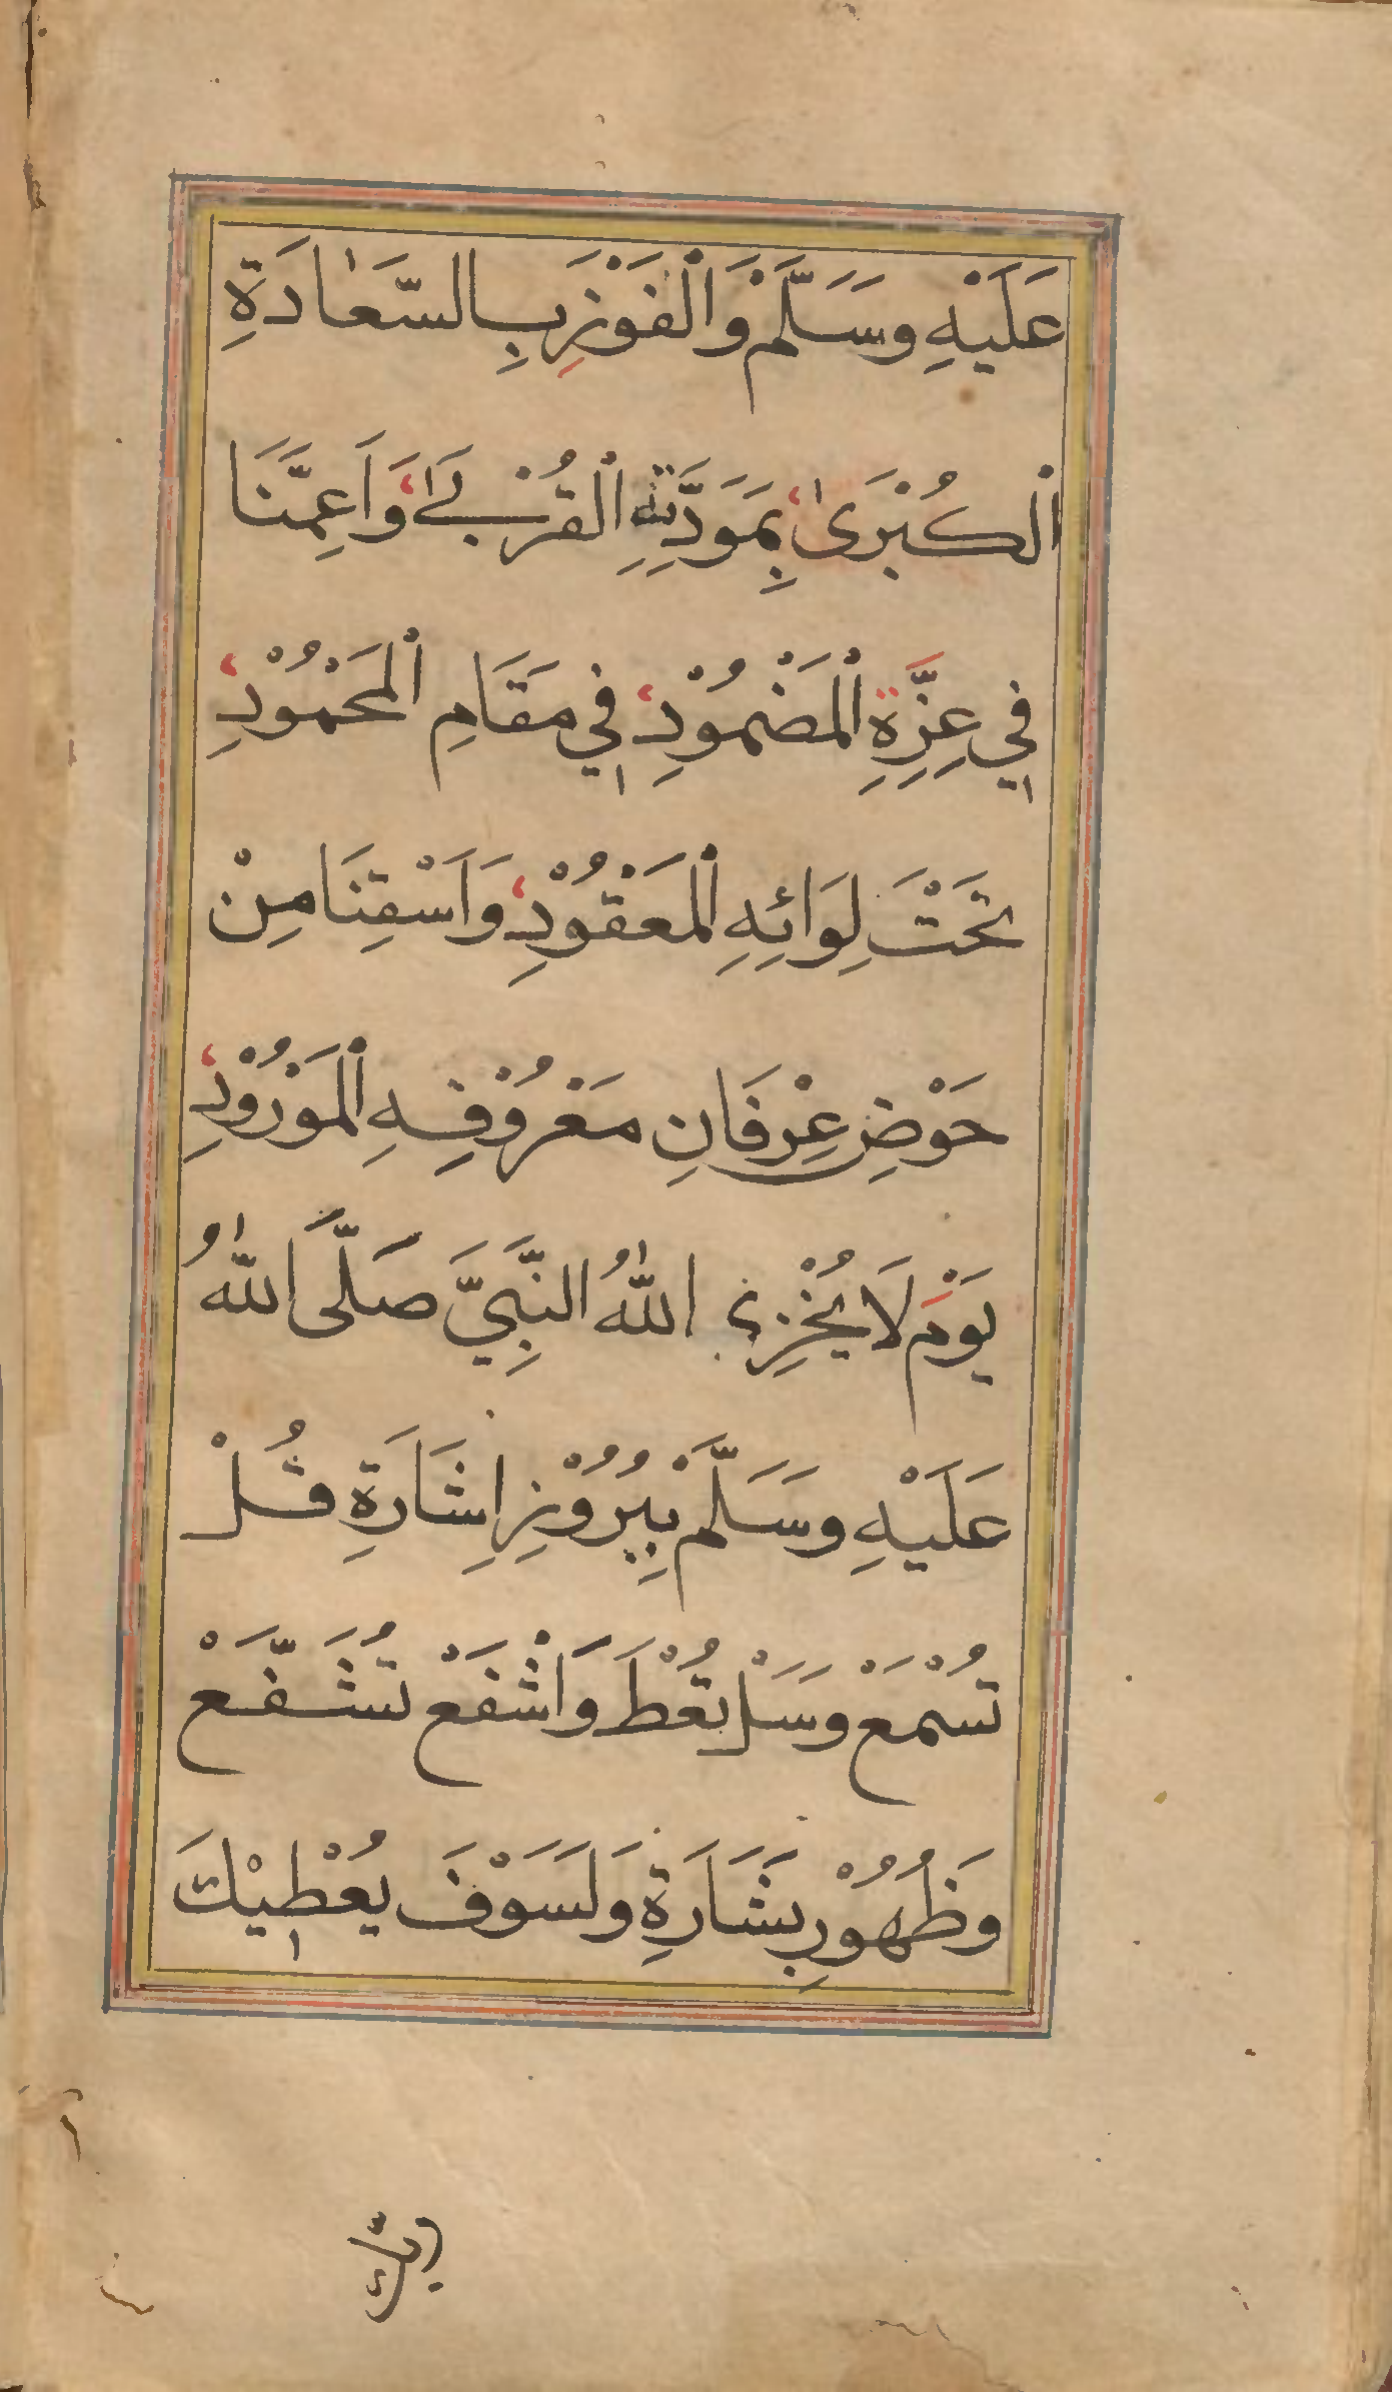 عَلَيْهِ وَسَلَّمْ وَالْفَوْزِ بِالسَّعٰادَةِ
الْكُبْرَىٰ بِمَوَدَّتِهِ الْقُرْبٰى وَاَعِمَّنَا
فِي عِزَّةِ الْمَضْمُوْدِ فِي مَقَامِ الْمَحْمُوْدِ
تَحْتَ لِوَائِهِ الْمَعْقُوْدِ وَاَسْقِنَا مِنْ
حَوْضِ عِرْفَانِ مَعْرُوْفِهِ الْمَوْرُوْدِ
يَوْمَ لَا يُخْزِي اللّٰهُ النَّبِيَّ صَلَّى اللّٰهُ
عَلَيْهِ وَسَلَّمْ بِبُرُوْزِ اِشَارَةِ قُلْ
تُسْمَعْ وَسَلْ تُعْطَ وَاشْفَعْ تُشَفَّعْ
وَظُهُوْرِ بَشَارَةِ وَلَسَوْفَ يُعْطِيْكَ